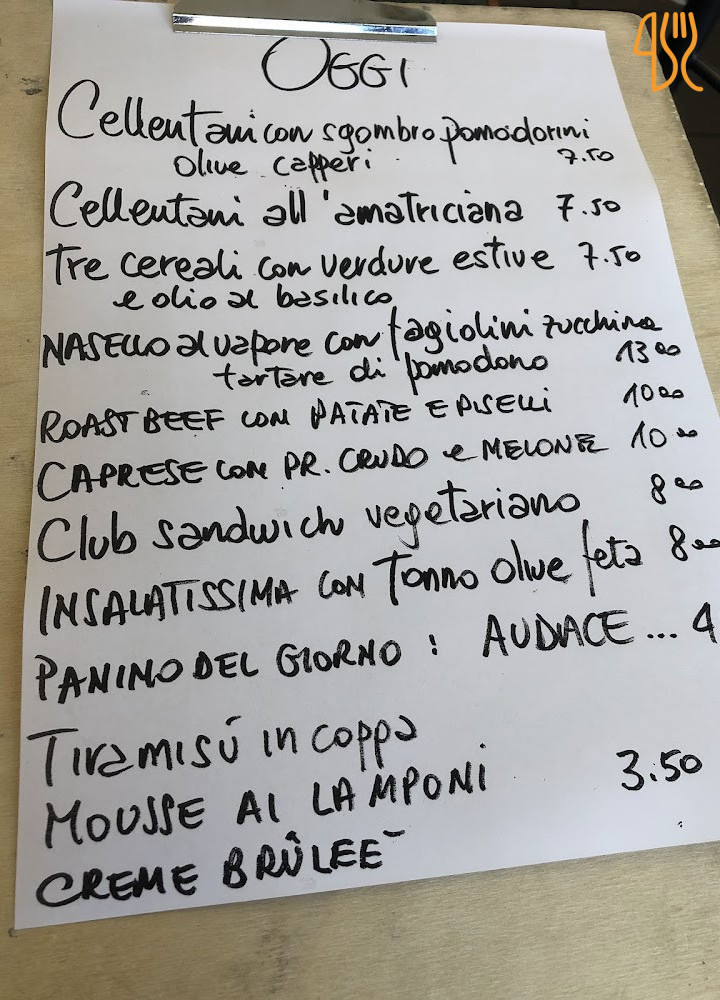 OGGI
Cellentani con sgombro pomodorini
olive capperi 7.50
Cellentani all'amatriciana 7.50
Tre cereali con verdure estive 7.50
e olio al basilico
NASELLO al vapore con fagiolini zucchine
tartare di pomodoro 13.00
ROAST BEEF CON PATATE E PISELLI 10.00
CAPRESE CON PR. CRUDO e MELONE 10.00
Club sandwich vegetariano 8.00
INSALATISSIMA CON Tonno olive feta 8.00
PANINO DEL GIORNO : AUDACE... 4
Tiramisú in coppa
MOUSSE AI LAMPONI 3.50
CREME BRÛLEE